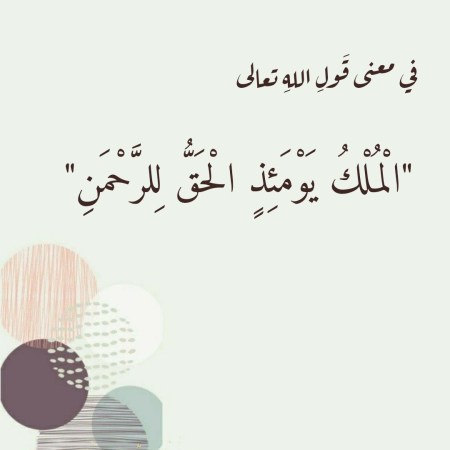 في معنى قَولِ اللهِ تعالى
"الْمُلْكُ يَوْمَئِذٍ الْحَقُّ لِلرَّحْمَنِ"